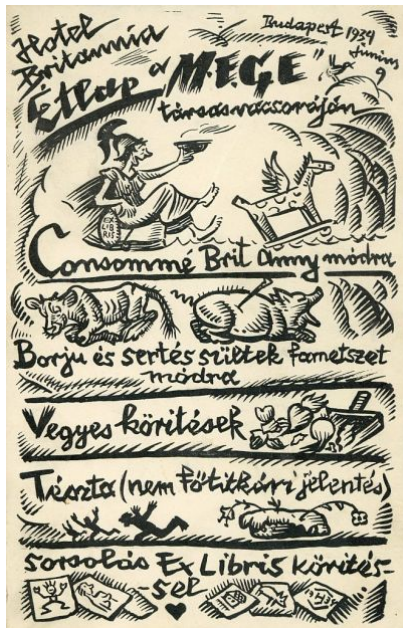 Hotel
Britannia
Budapest 1934
június
9
Étlap a "M.E.G.E"
társasvacsoráján
EX
LIB
RIS
Consommé Brit Anny módra
Borju és sertés sültek fametszet
módra
Vegyes köritések
Tészta (nem főtitkári jelentés)
sorsolás Ex Libris körités-
-sel